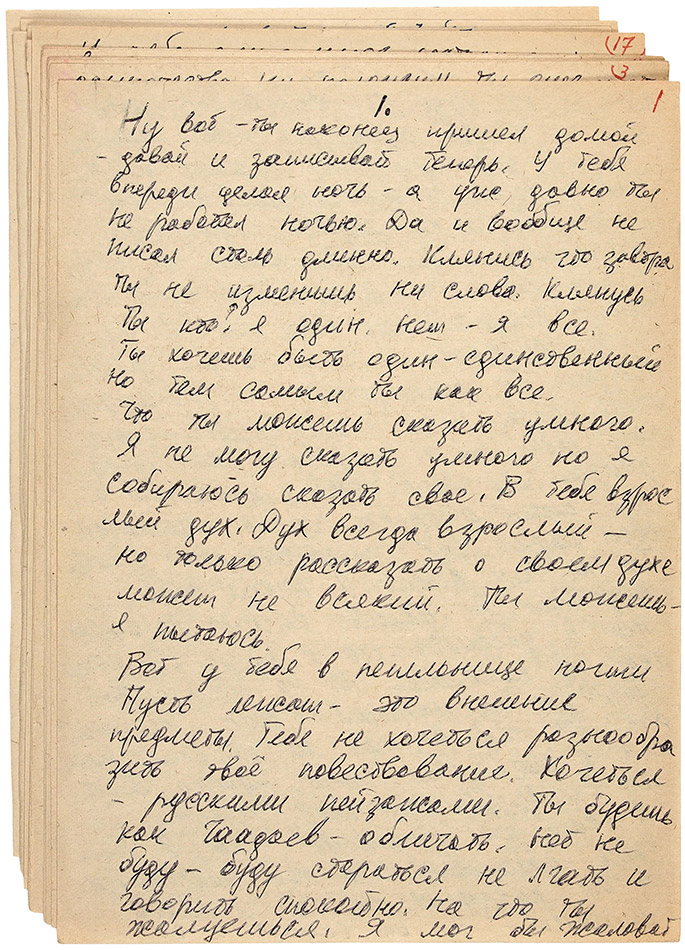 (17
(3
1
1.
Ну вот - ты наконец пришел домой
- давай и записывай теперь. У тебя
впереди целая ночь - а уже давно ты
не работал ночью. Да и вообще не
писал столь длинно. Клянись что завтра
ты не изменишь ни слова. Клянусь
Ты кто? Я один. нет - я все.
Ты хочешь быть один-единственный
но тем самым ты как все.
Что ты можешь сказать умного.
Я не могу сказать умного но я
собираюсь сказать свое. В тебе взрос
лый дух. Дух всегда взрослый -
но только рассказать о своем духе
может не всякий. Ты можешь-
Я пытаюсь.
Вот у тебя в пепельнице ногти
Пусть лежат - это внешние
предметы. Тебе не хочеться разнообра
зить твоё повествование. Хочеться
- русскими пейзажами. Ты будешь
как Чаадаев - обличать. Нет не
буду - буду стараться не лгать и
говорить спокойно. На что ты
жалуешься. Я мог бы жаловат